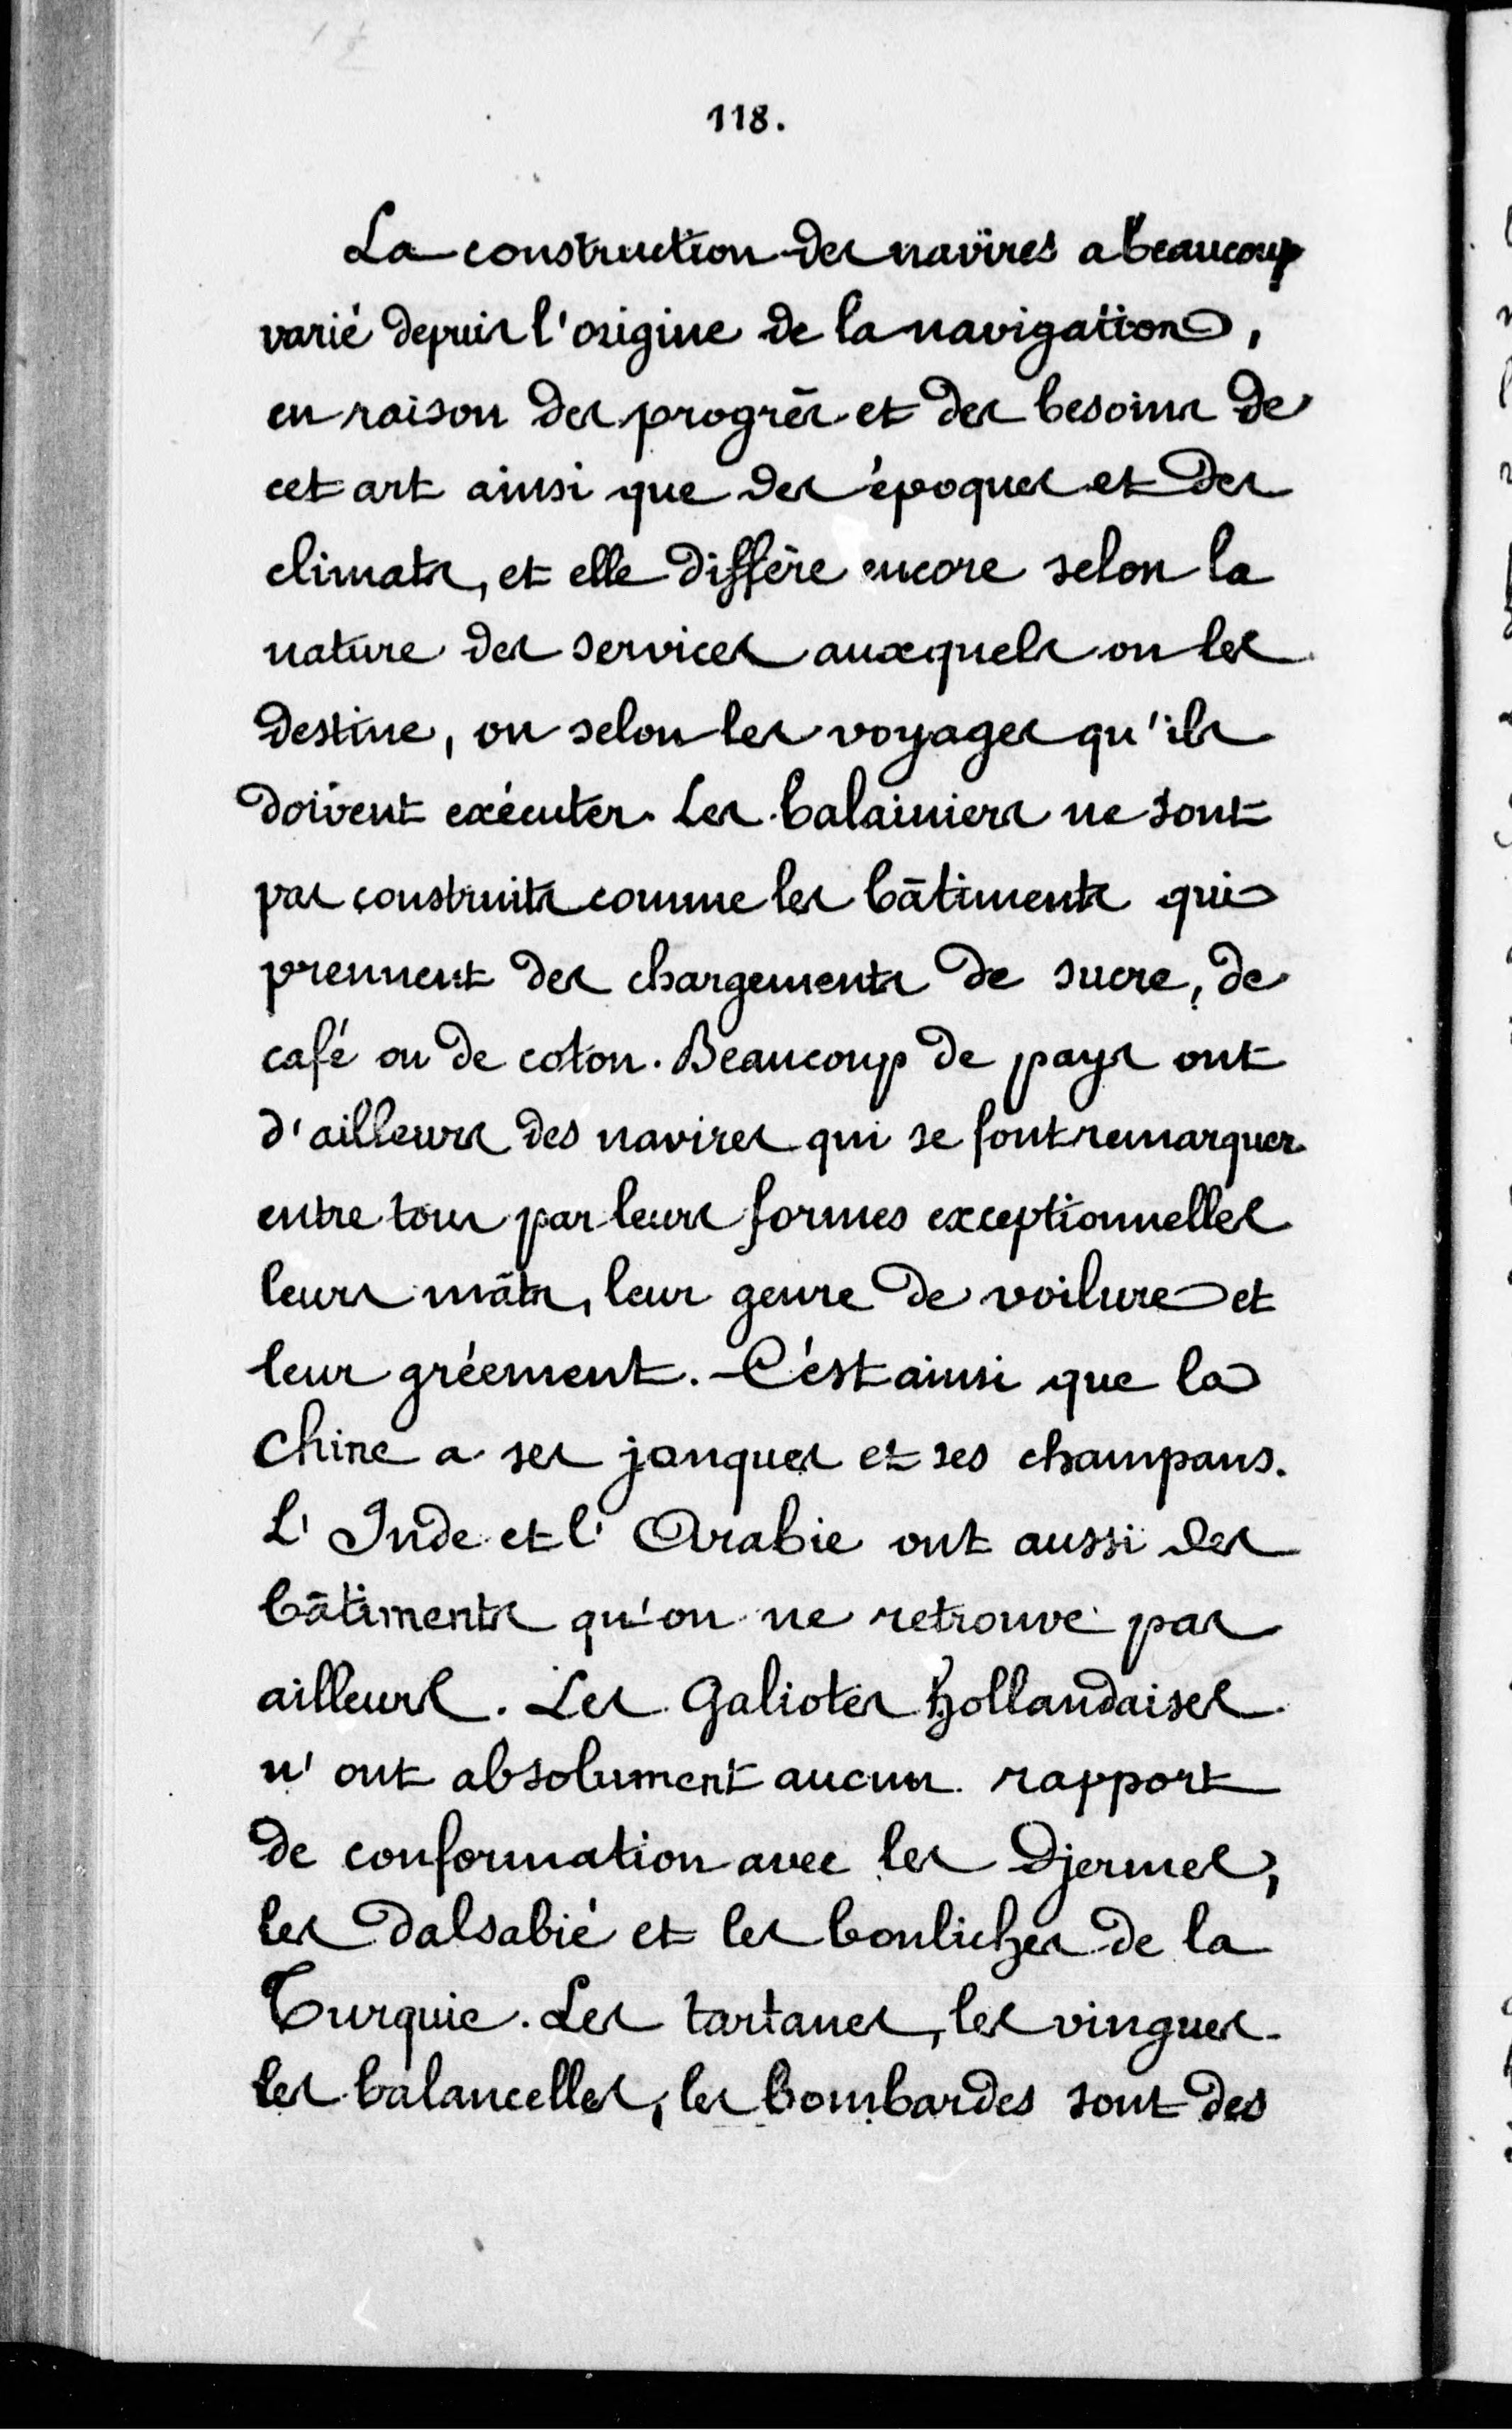 118.
La construction des navires a beaucoup
varié depuis l'origine de la navigation,
en raison des progrès et des besoins de
cet art ainsi que des époques et des
climats, et elle diffère encore selon la
nature des services auxquels on les
destine, ou selon les voyages qu'ils
doivent exécuter. Les balainiers ne sont
pas construits comme les bâtiments qui
prennent des chargements de sucre, de
café ou de coton. Beaucoup de pays ont
d'ailleurs des navires qui se font remarquer
entre tous par leurs formes exceptionnelles
leurs mâts, leur genre de voilure et
leur gréement. – C'est ainsi que la
Chine a ses jonques et ses champans.
L'Inde et l'Arabie ont aussi des
bâtiments qu'on ne retrouve pas
ailleurs. Les Galiotes hollandaises
n'ont absolument aucun rapport
de conformation avec les Djermes,
les Dalsabié et les bouliches de la
Turquie. Les tartanes, les vingues.
les balancelles, les bombardes sont des